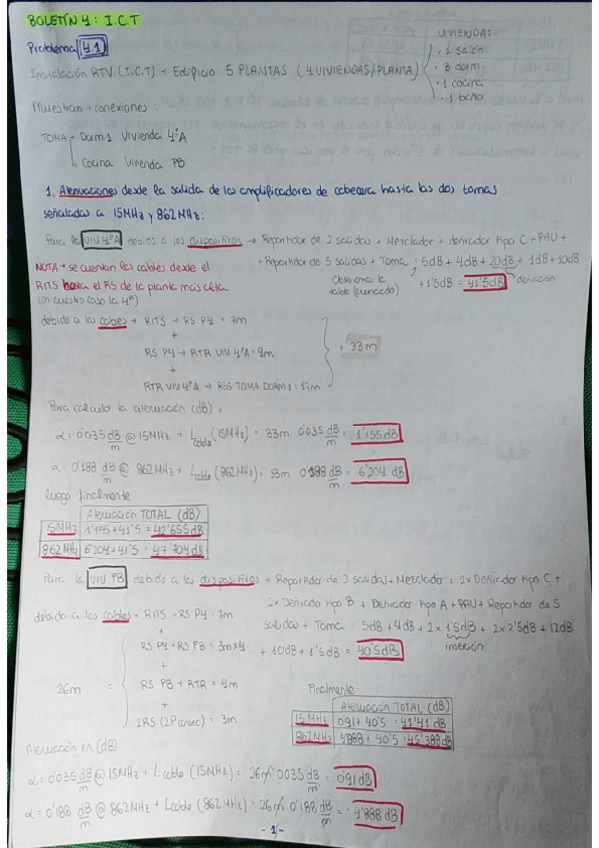 BOLETÍN 4: I.C.T
Problema 4.1
Instalación RTV (I.C.T) → Edificio 5 PLANTAS (4 VIVIENDAS/PLANTA)
VIVIENDA:
· 1 salón
· 3 dorm.
· 1 cocina
· 1 baño
Muestran → conexiones:
TOMA → Dorm 1 Vivienda 4ºA
↳ Cocina Vivienda PB
1. Atenuaciones desde la salida de los amplificadores de cabecera hasta las dos tomas
señaladas a 15MHz y 862MHz.
Para la VIV 4ºA debido a los dispositivos → Repartidor de 2 salidas + Mezclador + derivador tipo C + PAU +
+ Repartidor de 5 salidas + Toma = 5dB + 4dB + 20dB + 1dB + 10dB
derivación
+ 1'5dB = 41'5dB
NOTA → se cuentan los cables desde el
RITS hasta el RS de la planta más alta
(en nuestro caso la 4ª)
debido a los cables → RITS → RS P4 = 7m
+
RS P4 → RTR VIV 4ºA = 9m
+
RTR VIV 4ºA → REG TOMA DORM 1 = 17m
33m
Para calcular la atenuación (dB) →
α = 0'035 dB/m @ 15MHz → Lcable (15MHz) = 33m 0'035 dB/m = 1'155dB
α = 0'188 dB/m @ 862MHz → Lcable (862MHz) = 33m 0'188 dB/m = 6'204 dB
Luego finalmente
Atenuación TOTAL (dB)
15MHz 1'155+41'5 = 42'655dB
862MHz 6'204+41'5 = 47'704dB
Para la VIV PB debido a los dispositivos → Repartidor de 2 salidas + Mezclador + 2x Derivador tipo C +
2x Derivador tipo B + Derivador tipo A + PAU + Repartidor de 5
salidas + Toma = 5dB + 4dB + 2x 1'5dB + 2x 2'5dB + 12dB
inserción
+ 10dB + 1'5dB = 40'5dB
debido a los cables → RITS → RS P4 = 7m
+
RS P4 → RS PB = 3m x 4
+
26m = RS PB → RTR = 4m
+
2RS (2Pconsec) = 3m
Finalmente
Atenuación TOTAL (dB)
15MHz 0'91 + 40'5 = 41'41 dB
862MHz 4'888 + 40'5 = 45'388dB
Atenuación en (dB)
α = 0'035 dB/m @ 15MHz → Lcable (15MHz) = 26m 0'035 dB/m = 0'91dB
α = 0'188 dB/m @ 862MHz → Lcable (862MHz) = 26m 0'188 dB/m = 4'888 dB
- 1 -